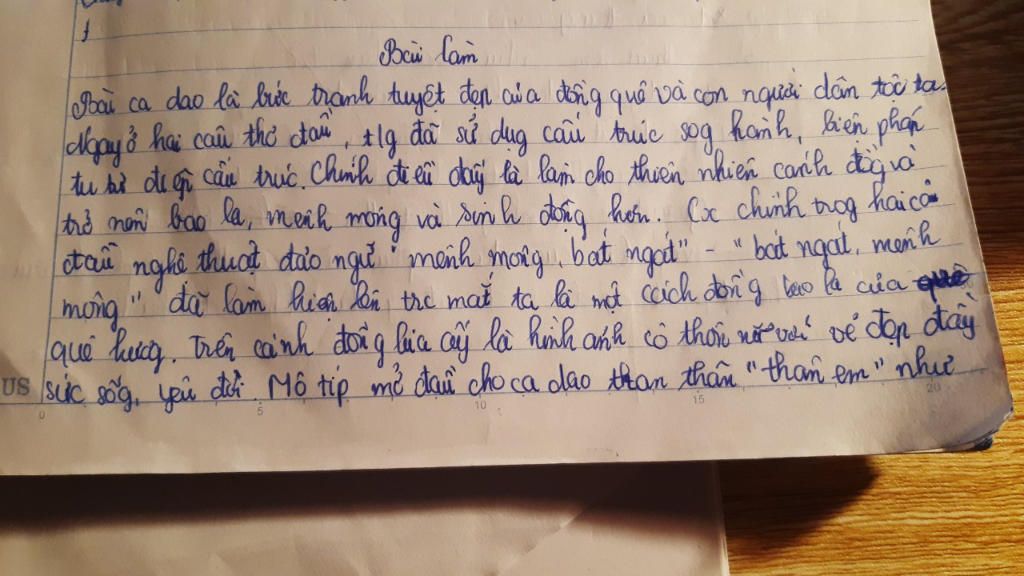 Bài làm
Bài ca dao là bức tranh tuyệt đẹp của đồng quê và con người dân tộc ta.
Ngay ở hai câu thơ đầu, t/g đã sử dụg cấu trúc sog hành, biện pháp
tu từ điệp cấu trúc. Chính điều đấy là làm cho thiên nhiên cánh đồg và
trở nên bao la, mênh mông và sinh động hơn. Cx chính trog hai câu
đầu nghệ thuật đảo ngữ "mênh mông, bát ngát" - "bát ngát, mênh
mông" đã làm hiện lên trc mắt ta là một cách đồng bao la của
quê hươg. Trên cánh đồng lúa ấy là hình ảnh cô thôn nữ với vẻ đẹp đầy
sức sốg, yêu đời. Mô típ mở đầu cho ca dao than thân "thân em" như
US
0 5 10 15 20